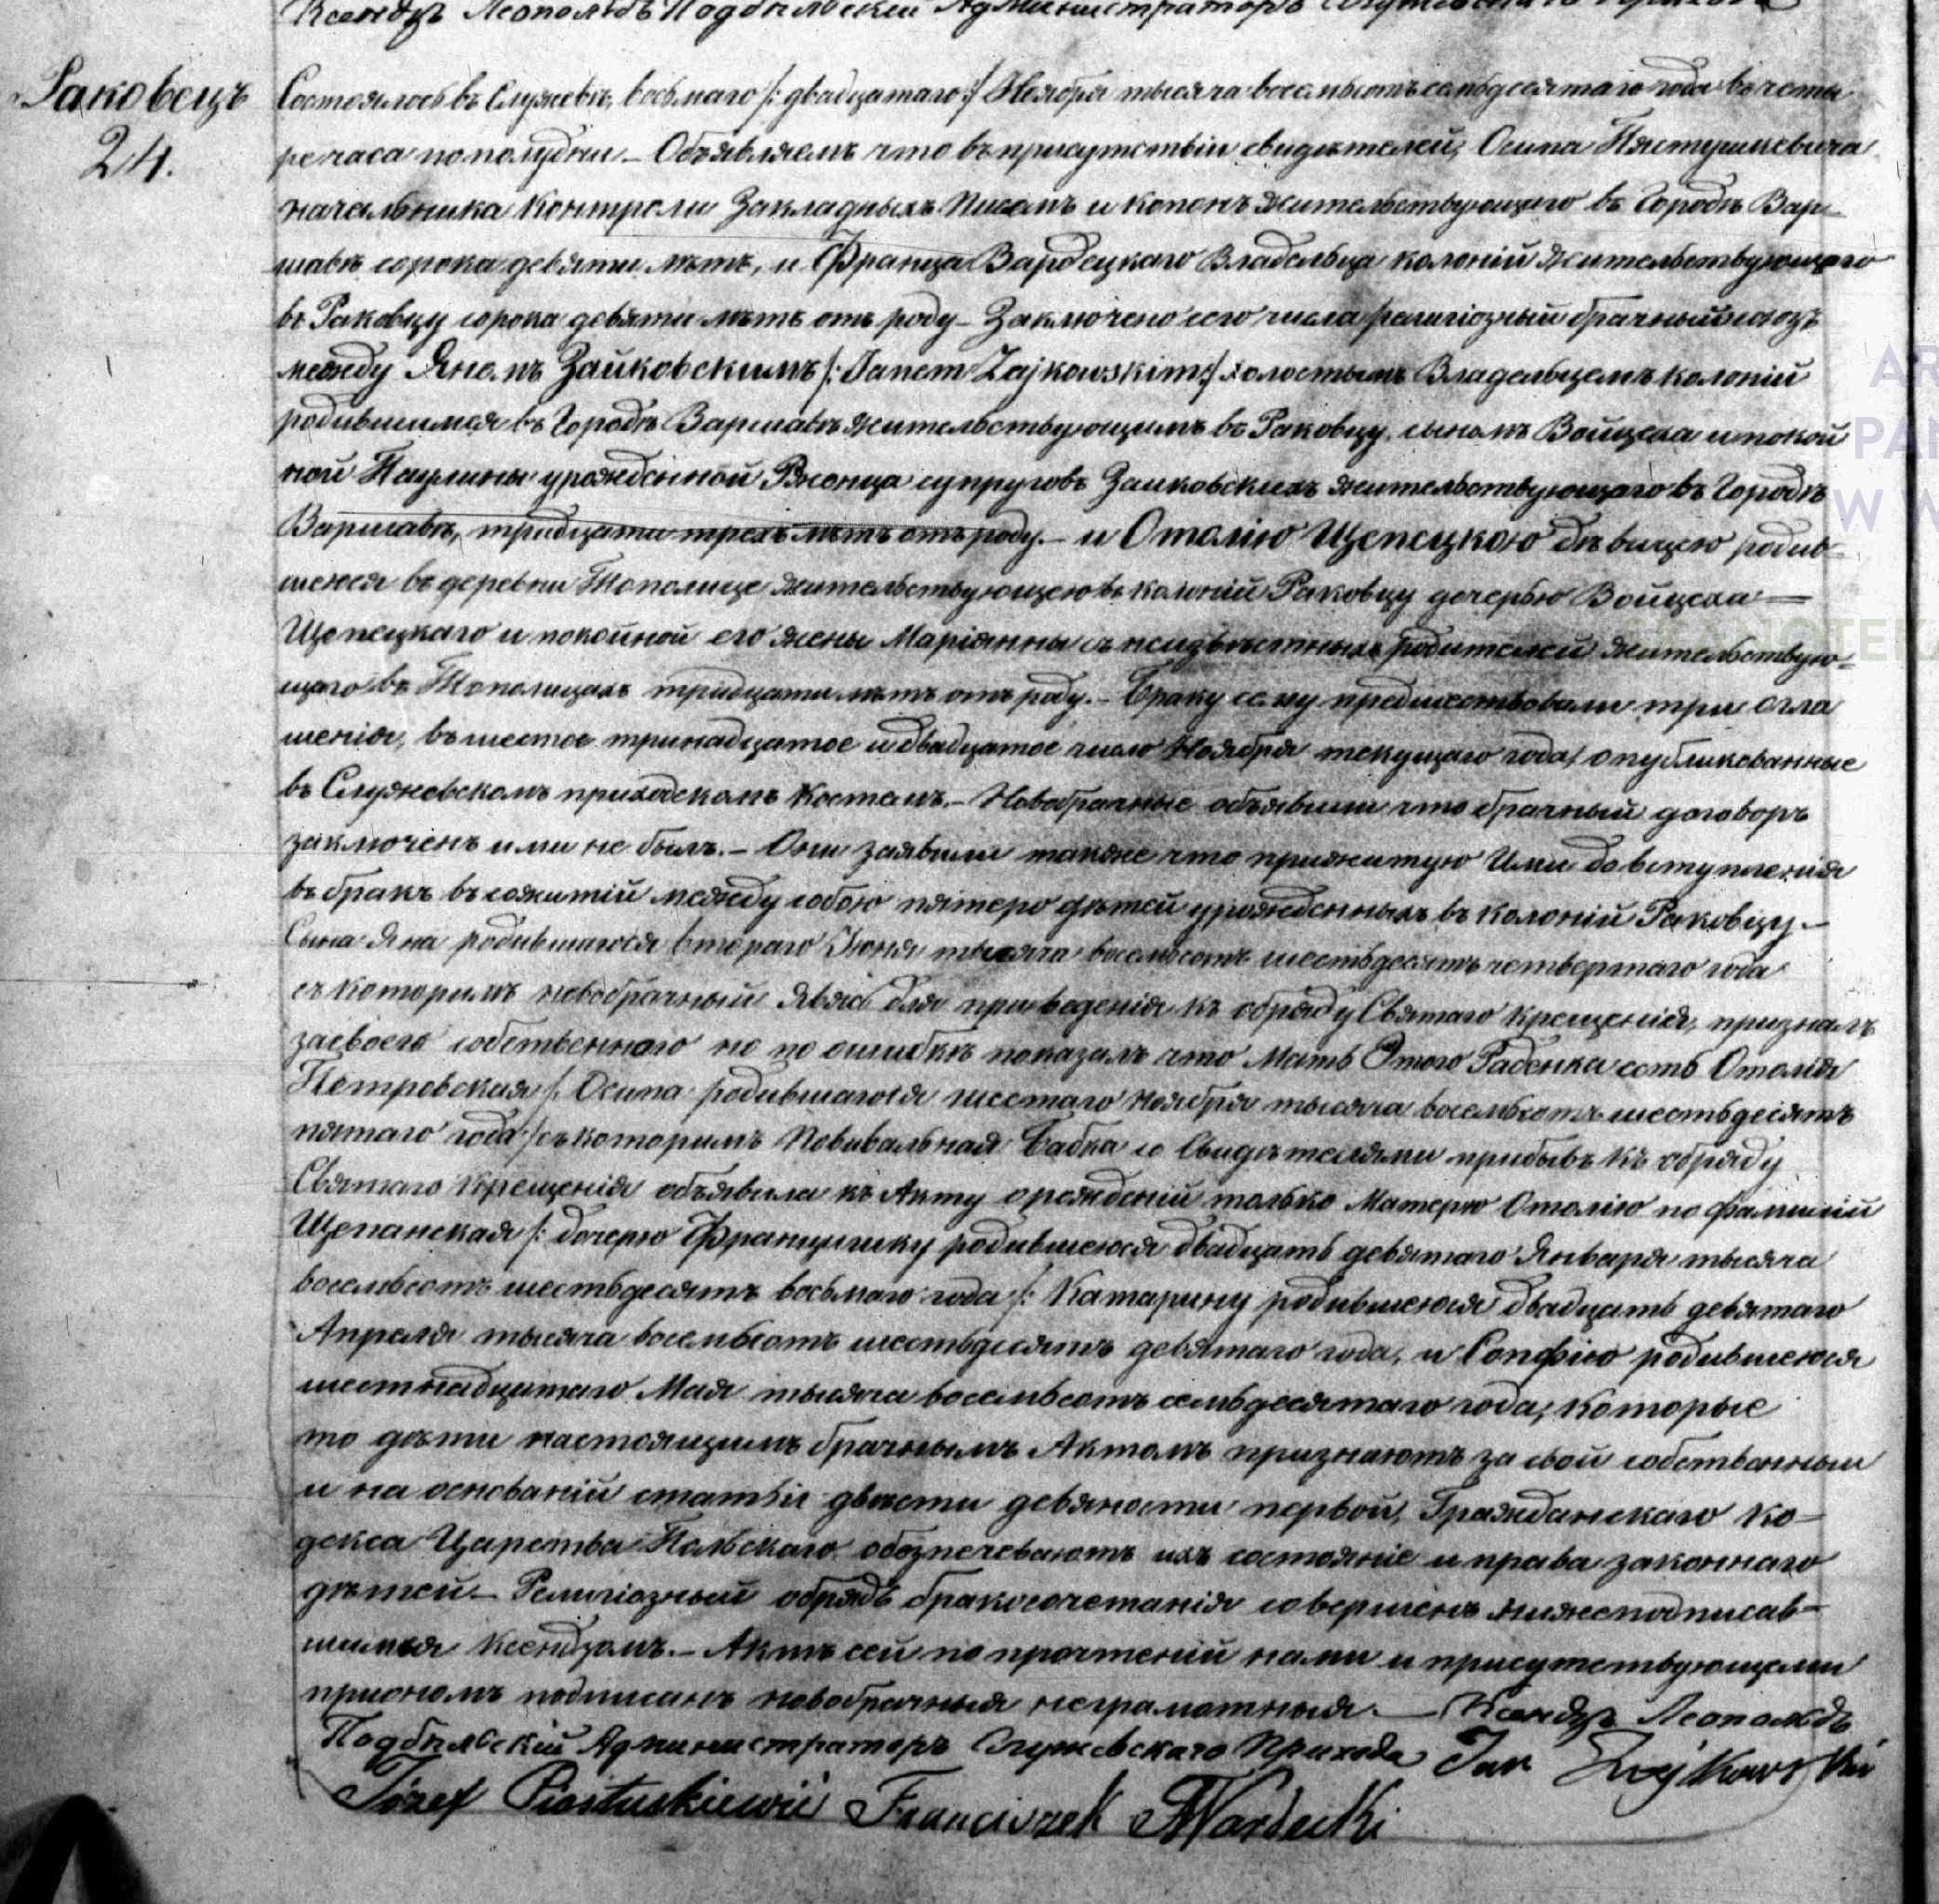 Ксендзъ Леопольдъ Подбѣльскій Администраторъ Служевскаго Прихода
Раковецъ
24.
Состоялось въ Служевѣ, восьмаго /: двадцатаго :/ Ноября тысяча восемьсотъ семьдесятаго года въ четы
ре часа пополудни – Объявляемъ что въ присутствіи свидѣтелей, Осипа Пястушкевича
начальника Контроли Закладныхъ Писемъ и копонъ жительствующаго въ Городѣ Вар-
шавѣ сорока девяти лѣтъ, и Франца Вардецкаго Владельца колоніи жительствующаго
въ Раковцу сорока девяти лѣтъ отъ роду – Заключено сего числа религіозный брачный союзъ
между Яномъ Зайковскимъ /: Janem Zajkowskim :/ холостымъ Владельцемъ колоніи
родившимся въ Городѣ Варшавѣ жительствующимъ въ Раковцу, сыномъ Войцеха и покой
ной Паулины урожденной супруговъ Заиковскихъ жительствующаго въ Городѣ
Варшавѣ, тридцати трехъ лѣтъ отъ роду. – и Отолію Щепецкою дѣвицею родив-
шеюся въ деревни Тополице жительствующею въ колоніи Раковцу дочерью Войцеха
Щепецкаго и покойной его жены Маріянны съ неизвѣстныхъ родителей жительствую-
щаго въ Тополицахъ тридцати лѣтъ отъ роду. – Браку сему предшествовали три огла
шенія, въ шестое тринадцатое и двадцатое число Ноября текущаго года, опубликованные
въ Служевскомъ приходскомъ Костелѣ. – Новобрачные объявили что брачный договоръ
заключенъ ими не былъ. – Они заявили также что прижитую Ими до вступленія
въ бракъ въ сожитіи между собою пятеро дѣтей урожденныхъ въ Колоніи Раковцу. –
Сына Яна родившагося втораго Іюня тысяча восемьсотъ шестьдесятъ четвертаго года
съ которимъ новобрачный явясь для приведенія къ обряду Святаго Крещенія, призналъ
за своего собственнаго но по ошибкѣ показалъ что Мать Этого Рабенка есть Отолія
Петровская /: Осипа родившагося шестаго Ноября тысяча восемьсотъ шестьдесятъ
пятаго года :/ съ которимъ Повивальная Бабка со Свидѣтелями прибывъ къ обряду
Святаго Крещенія объявила къ Акту о рожденіи только Матерю Отолію по фамиліи
Щепанская /: дочерю Францишку родившеюся двадцать девятаго Января тысяча
восемьсотъ шестьдесятъ восьмаго года /: Катарину родившеюся двадцать девятаго
Апреля тысяча восемьсотъ шестьдесятъ девятаго года, и Сопфію родившеюся
шестнадцатаго Мая тысяча восемьсотъ семьдесятаго года, которые
то дѣти настоящимъ брачнымъ Актомъ признаютъ за свои собственныи
и на основаніи статьи двѣсти девяности первой, Гражданскаго Ко-
декса Царства Польскаго обезпечеваютъ ихъ состояніе и права законнаго
дѣтей. – Религіозный обрядъ бракосочетанія совершенъ нижеподписав-
шимся Ксендзомъ. – Актъ сей по прочтеніи нами и присутствующими
при ономъ подписанъ новобрачныя неграмотныя. – Ксендзъ Леопольдъ
Подбѣльскій Администраторъ Служевскаго Прихода Jan Zajkowski
Józef Piastuszkiewicz Franciszek Wardecki